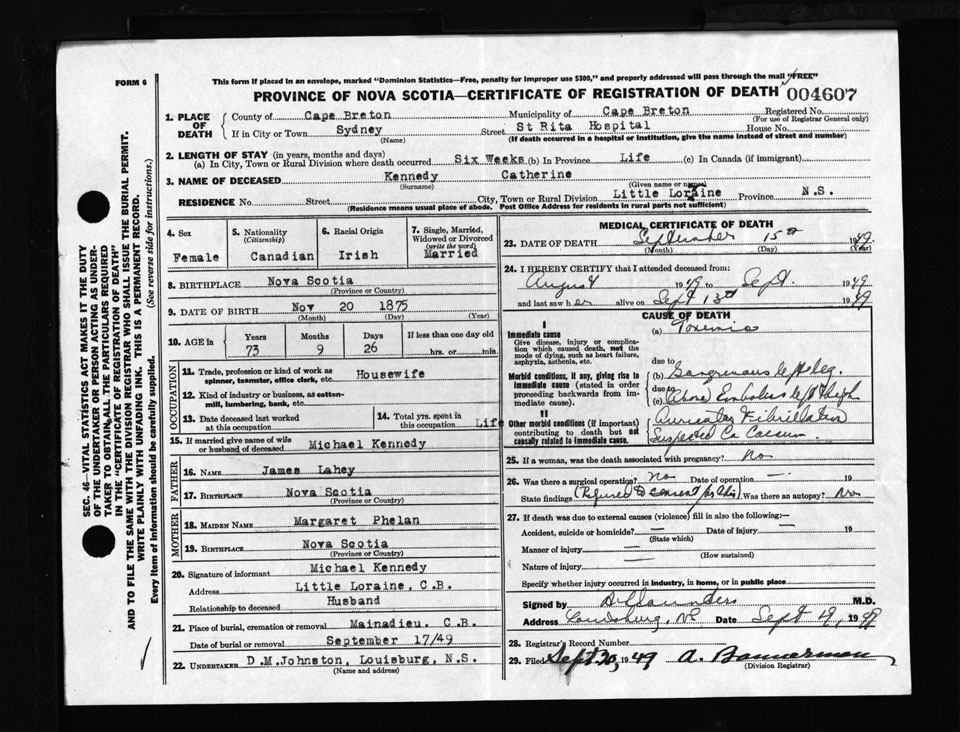 FORM 6
This form if placed in an envelope, marked "Dominion Statistics—Free, penalty for improper use $300," and properly addressed will pass through the mail "FREE"
PROVINCE OF NOVA SCOTIA—CERTIFICATE OF REGISTRATION OF DEATH 004607
1. PLACE OF DEATH
County of Cape Breton Municipality of Cape Breton Registered No.
(For use of Registrar General only)
If in City or Town Sydney Street St Rita Hospital House No.
(Name) (If death occurred in a hospital or institution, give the name instead of street and number)
2. LENGTH OF STAY (in years, months and days)
(a) In City, Town or Rural Division where death occurred Six Weeks (b) In Province Life (c) In Canada (if immigrant)
3. NAME OF DECEASED Kennedy Catherine
(Surname) (Given name or names)
RESIDENCE No. Street City, Town or Rural Division Little Loraine Province N.S.
(Residence means usual place of abode. Post Office Address for residents in rural parts not sufficient)
4. Sex
Female
5. Nationality
(Citizenship)
Canadian
6. Racial Origin
Irish
7. Single, Married, Widowed or Divorced
(write the word)
Married
8. BIRTHPLACE Nova Scotia
(Province or Country)
9. DATE OF BIRTH Nov 20 1875
(Month) (Day) (Year)
10. AGE in Years Months Days If less than one day old
73 9 26 hrs. or min.
OCCUPATION
11. Trade, profession or kind of work as spinner, teamster, office clerk, etc. Housewife
12. Kind of industry or business, as cotton-mill, lumbering, bank, etc.
13. Date deceased last worked at this occupation
14. Total yrs. spent in this occupation Life
15. If married give name of wife or husband of deceased Michael Kennedy
FATHER
16. NAME James Lahey
17. BIRTHPLACE Nova Scotia
(Province or Country)
MOTHER
18. MAIDEN NAME Margaret Phelan
19. BIRTHPLACE Nova Scotia
(Province or Country)
20. Signature of informant Michael Kennedy
Address Little Loraine, C.B.
Relationship to deceased Husband
21. Place of burial, cremation or removal Mainadieu. C.B.
Date of burial or removal September 17/49
22. UNDERTAKER D.M.Johnston, Louisburg, N.S.
(Name and address)
MEDICAL CERTIFICATE OF DEATH
23. DATE OF DEATH September 15th 1949
(Month) (Day)
24. I HEREBY CERTIFY that I attended deceased from:
August 1949 to Sept. 1949
and last saw her alive on Sept 13th 1949
CAUSE OF DEATH
I
Immediate cause (a) Toxemia
Give disease, injury or complication which caused death, not the mode of dying, such as heart failure, asphyxia, asthenia, etc.
due to
Morbid conditions, if any, giving rise to immediate cause (stated in order proceeding backwards from immediate cause).
(b) Gangrenous left leg.
due to
(c) Embolus left thigh
II
Other morbid conditions (if important) contributing to death but not causally related to immediate cause.
Auricular Fibrillation
Suspected Ca Caecum.
25. If a woman, was the death associated with pregnancy? No
26. Was there a surgical operation? No Date of operation 19
State findings (Refused consent for this) Was there an autopsy? No
27. If death was due to external causes (violence) fill in also the following:—
Accident, suicide or homicide? — Date of injury 19
(State which)
Manner of injury —
(How sustained)
Nature of injury —
Specify whether injury occurred in industry, in home, or in public place
Signed by M.D.
Address Louisburg, NS Date Sept 19, 1949
28. Registrar's Record Number
29. Filed Sept 30, 1949 A. Bannerman
(Division Registrar)
SEC. 46—VITAL STATISTICS ACT MAKES IT THE DUTY
OF THE UNDERTAKER OR PERSON ACTING AS UNDER-
TAKER TO OBTAIN ALL THE PARTICULARS REQUIRED
IN THE "CERTIFICATE OF REGISTRATION OF DEATH"
AND TO FILE THE SAME WITH THE DIVISION REGISTRAR WHO SHALL ISSUE THE BURIAL PERMIT.
WRITE PLAINLY WITH UNFADING INK. THIS IS A PERMANENT RECORD.
Every item of Information should be carefully supplied. (See reverse side for instructions.)